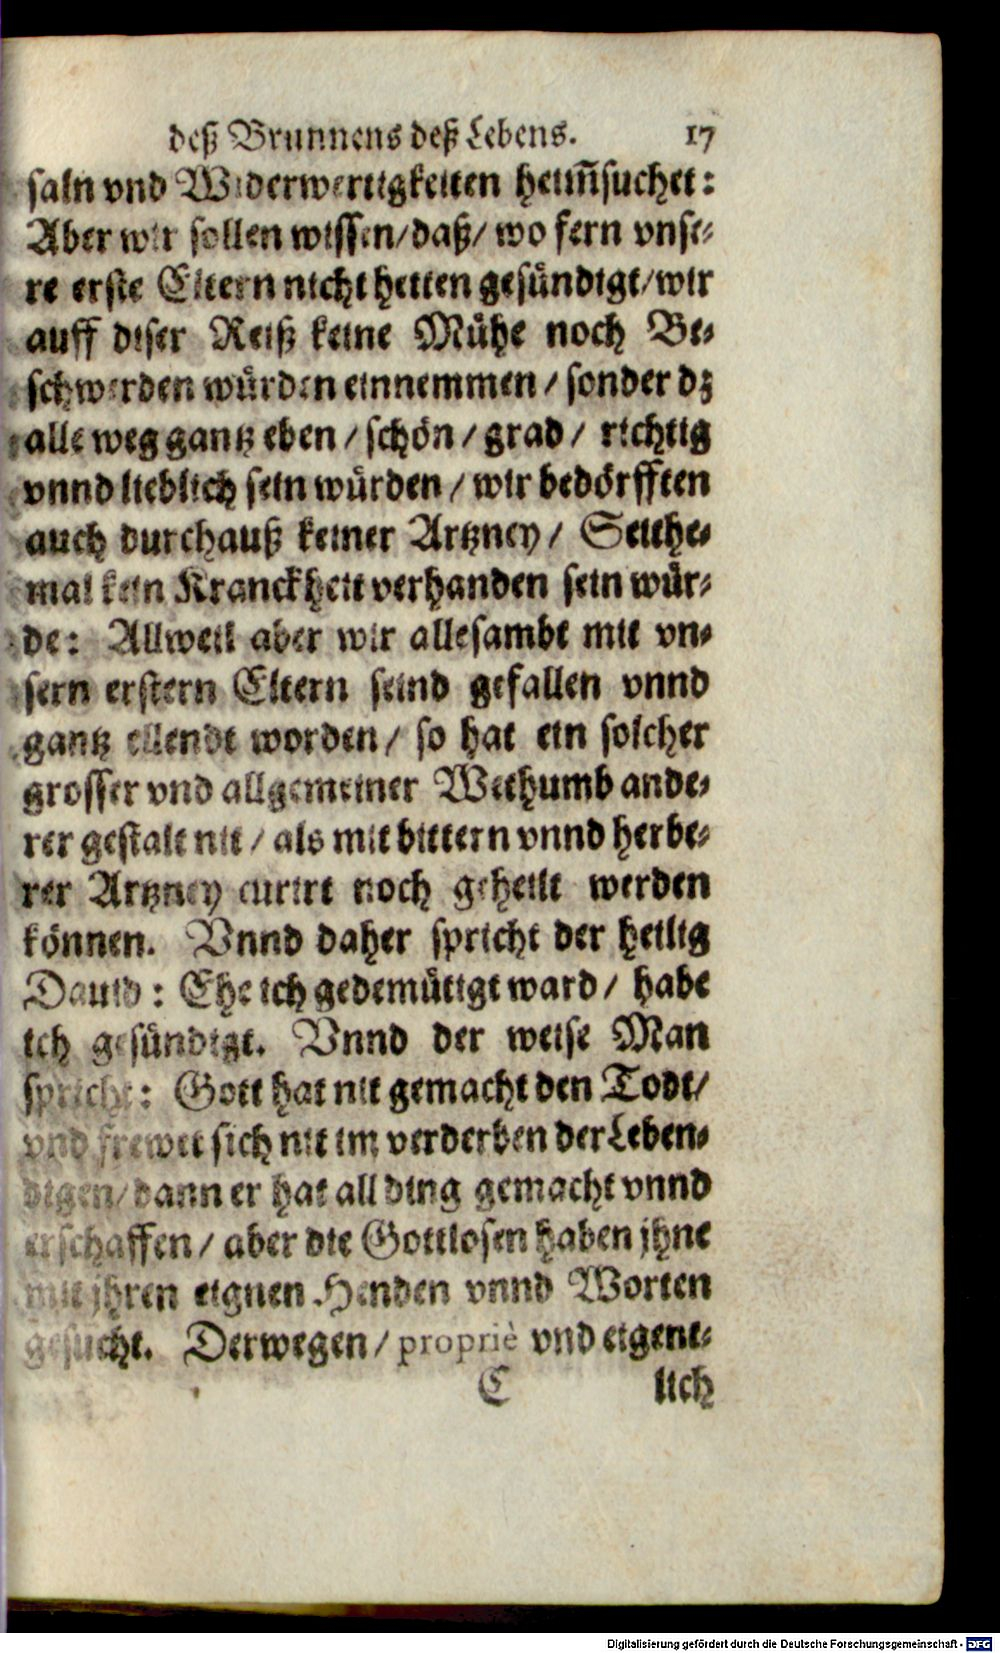 deß Brunnens deß Lebens. 17
saln vnd Widerwertigkeiten heim̃suchet:
Aber wir sollen wissen/daß/ wo fern vnse⸗
re erste Eltern nicht hetten gesündigt/wir
auff diser Reiß keine Mühe noch Be⸗
schwerden würden einnemmen / sonder dz
alle weg gantz eben / schön / grad / richtig
vnnd lieblich sein würden / wir bedörfften
auch durchauß keiner Artzney / Seithe⸗
mal kein Kranckheit verhanden sein wür⸗
de: Allweil aber wir allesambt mit vn⸗
sern erstern Eltern seind gefallen vnnd
gantz ellendt worden / so hat ein solcher
grosser vnd allgemeiner Weethumb ande⸗
rer gestalt nit / als mit bittern vnnd herbe⸗
rer Artzney curirt noch geheilt werden
können. Vnnd daher spricht der heilig
Dauid: Ehe ich gedemütigt ward / habe
ich gesündigt. Vnnd der weise Man
spricht: Gott hat nit gemacht den Todt/
vnd frewet sich nit im verderben der Leben⸗
digen/dann er hat all ding gemacht vnnd
erschaffen / aber die Gottlosen haben jhne
mit jhren eignen Henden vnnd Worten
gesucht. Derwegen / propriè vnd eigent⸗
C lich
Digitalisierung gefördert durch die Deutsche Forschungsgemeinschaft - DFG